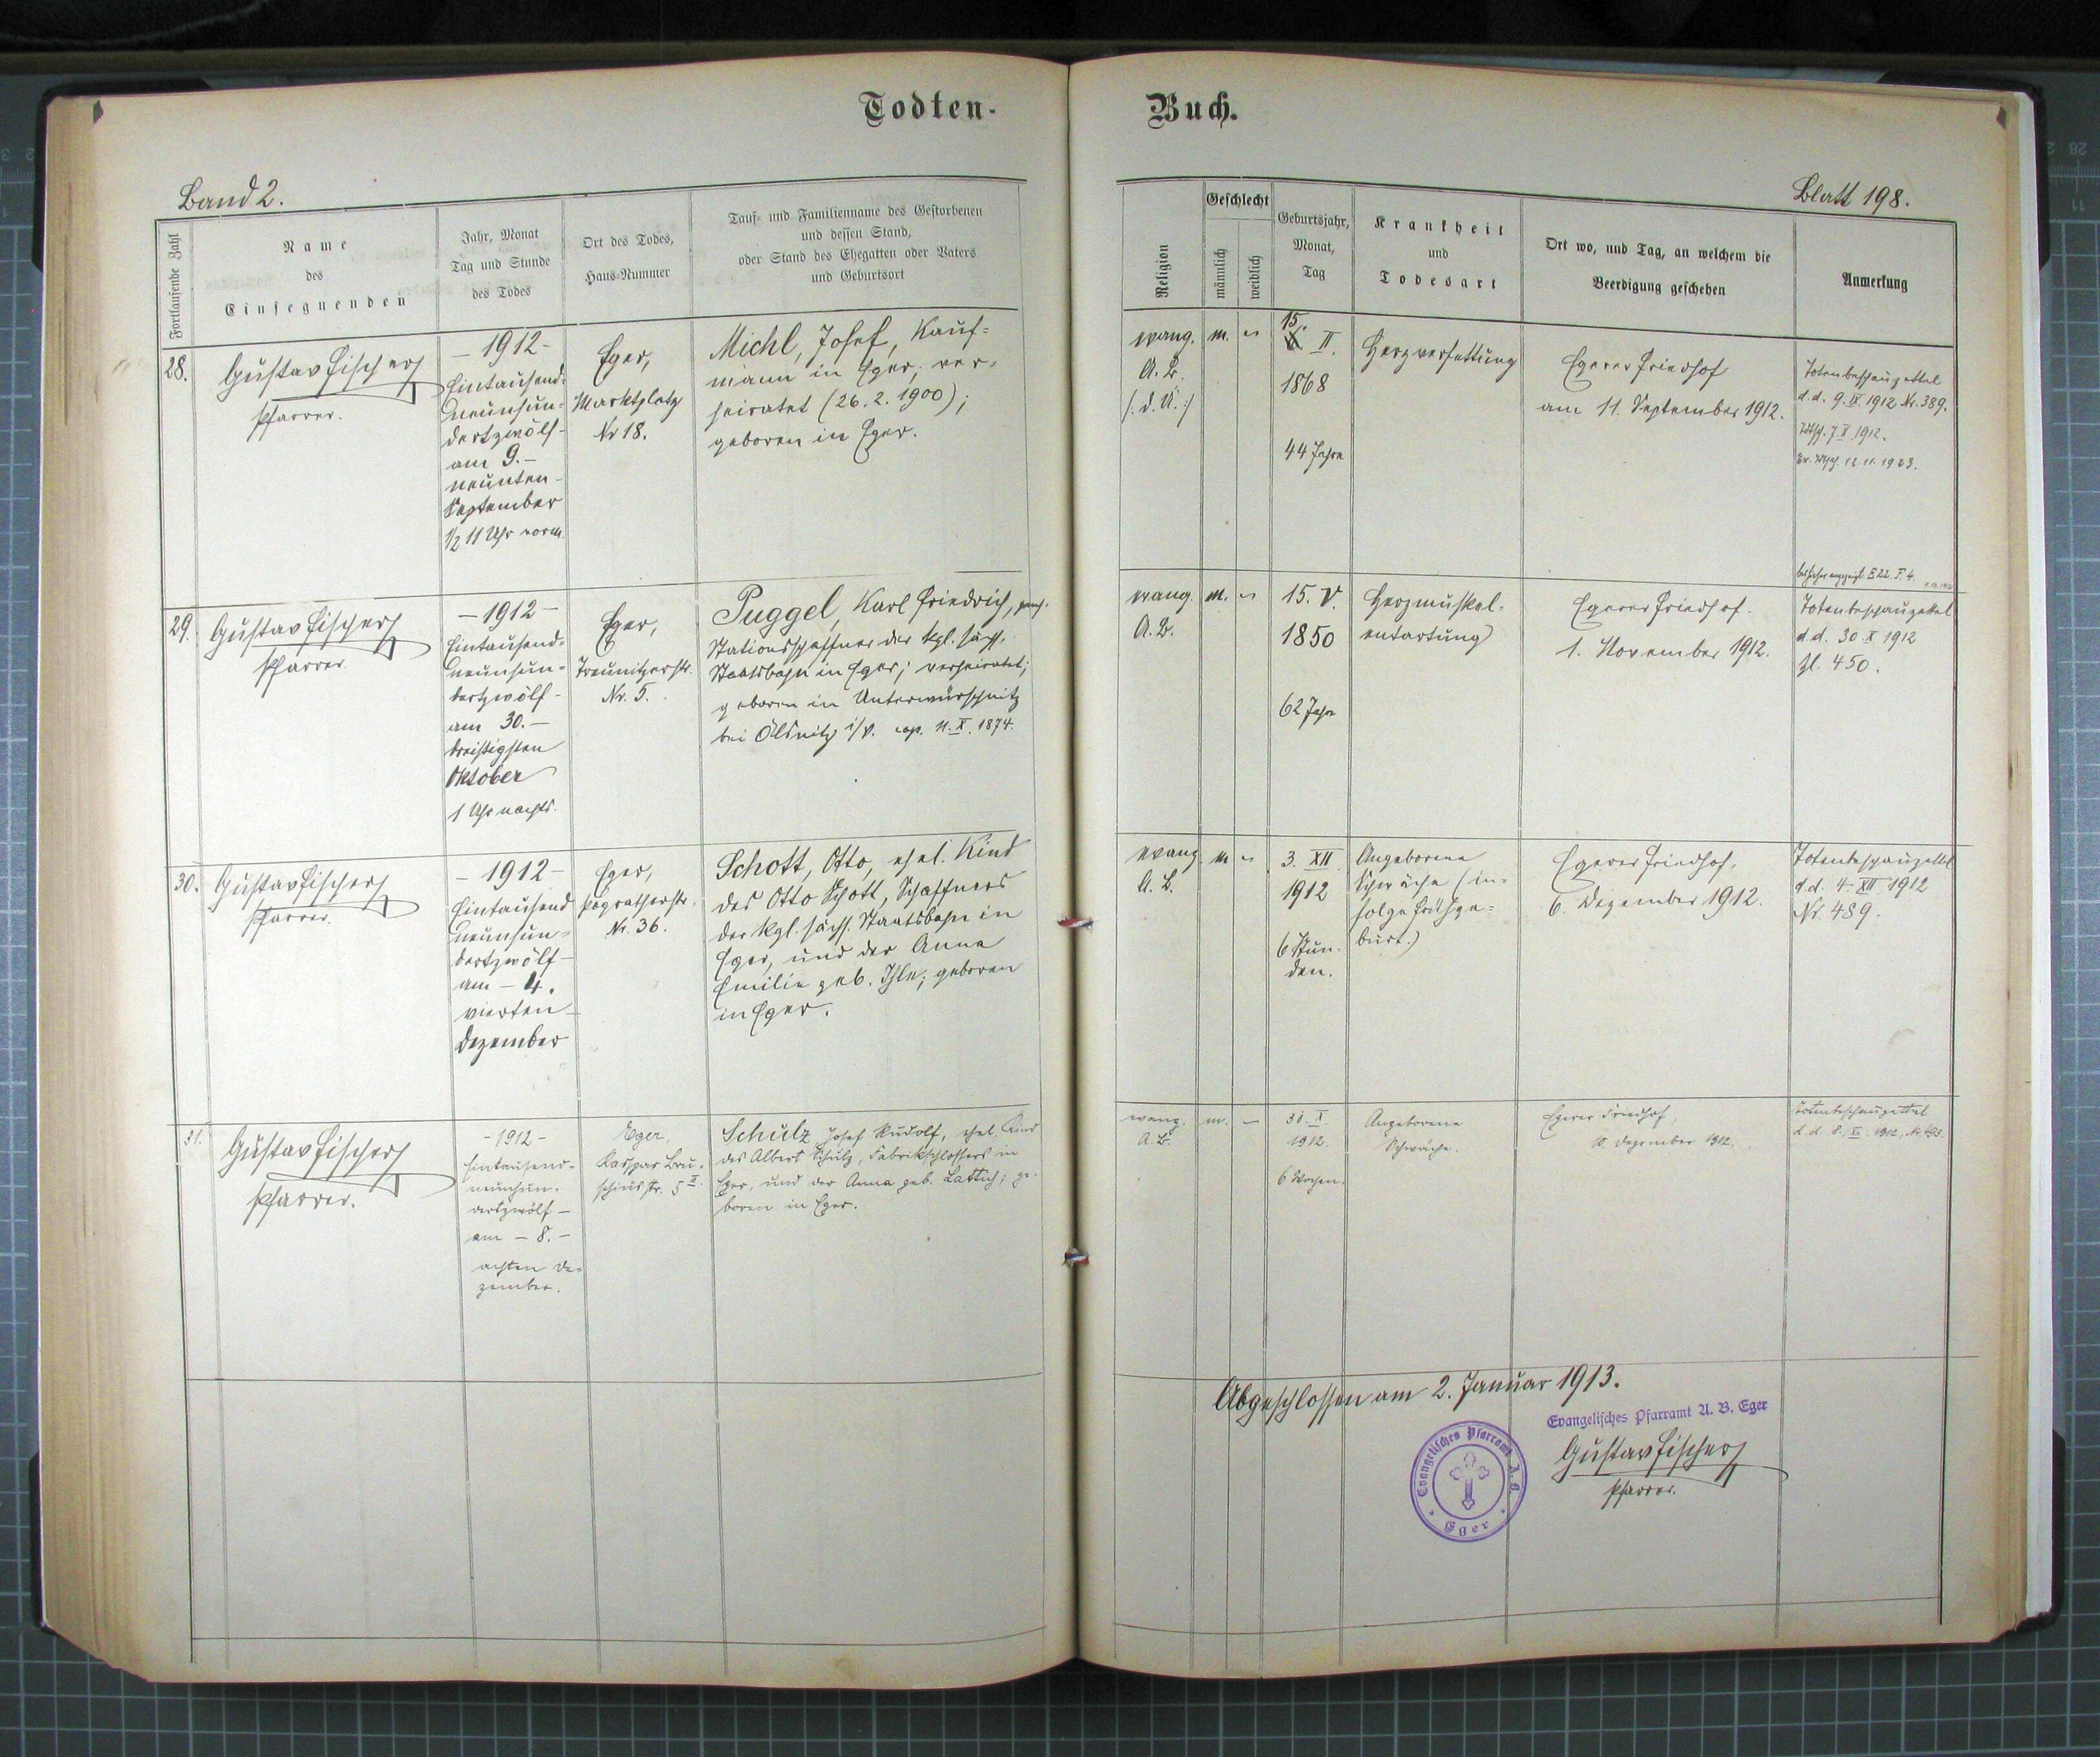 Todten-
Buch.
Band 2.
Blatt 198.
Fortlaufende Zahl
Name
des
Einsegnenden
Jahr, Monat
Tag und Stunde
des Todes
Ort des Todes,
Haus-Nummer
Tauf- und Familienname des Gestorbenen
und dessen Stand,
oder Stand des Ehegatten oder Vaters
und Geburtsort
Religion
Geschlecht
männlich
weiblich
Geburtsjahr,
Monat,
Tag
Krankheit
und
Todesart
Ort wo, und Tag, an welchem die
Beerdigung geschehen
Anmerkung
28.
Gustav Fischer
Pfarrer.
- 1912 -
Eintausend-
neunhun-
dertzwölf-
am 9. -
neunten -
September
1/2 11 Uhr vorm.
Eger,
Marktplatz
Nr 18.
Michl, Josef, Kauf-
mann in Eger, ver-
heiratet (26. 2. 1900);
geboren in Eger.
evang.
A. B.
/: d. Ü. :/
m.
"
15. II.
1868
44 Jahre
Herzverfettung
Egerer Friedhof
am 11. September 1912.
Totenbeschauzettel
d. d. 9. IX. 1912 Nr. 389.
7. X. 1912.
12. 11. 1923.
29.
Gustav Fischer
Pfarrer.
- 1912 -
Eintausend-
neunhun-
dertzwölf -
am 30. -
dreißigsten
Oktober
1 Uhr nachts.
Eger,
Treunitzerstr.
Nr. 5.
Puggel, Karl Friedrich, pens.
Stationsschaffner der kgl. sächs.
Staatsbahn in Eger; verheiratet;
geboren in Unterwürschnitz
bei Ölsnitz i/V. cop. 11. X. 1874.
evang.
A. B.
m.
"
15. V.
1850
62 Jahre
Herzmuskel-
entartung
Egerer Friedhof.
1. November 1912.
Totenbeschauzettel
d. d. 30. X 1912
Zl. 450.
30.
Gustav Fischer
Pfarrer.
- 1912 -
Eintausend
neunhun-
dertzwölf -
am - 4.
vierten -
Dezember
Eger,
Pogratherstr.
Nr. 36.
Schott, Otto, ehel. Kind
des Otto Schott, Schaffners
der kgl. sächs. Staatsbahn in
Eger, und der Anna
Emilie geb. Ihle; geboren
in Eger.
evang
A. B.
m
"
3. XII
1912
6 Stun-
den.
Angeborene
Schwäche (in-
folge Frühge-
burt.)
Egerer Friedhof,
6. Dezember 1912.
Totenbeschauzettel
d. d. 4. XII 1912
Nr. 489.
31.
Gustav Fischer
Pfarrer.
- 1912 -
Eintausend-
neunhun-
dertzwölf -
am - 8. -
achten De-
zember.
Eger,
Kaspar Bru-
schiusstr. 5 II.
Schulz Josef Rudolf, ehel. Kind
des Albert Schulz, Fabrikschlossers in
Eger, und der Anna geb. Lattich; ge-
boren in Eger.
evang.
A. B.
m.
-
31. X.
1912.
6 Wochen.
Angeborene
Schwäche.
Egerer Friedhof,
10. Dezember 1912.
Totenbeschauzettel
d. d. 8. XII. 1912, Nr. 493.
Abgeschlossen am 2. Januar 1913.
Evangelisches Pfarramt A. B. Eger
Gustav Fischer
Pfarrer.
Evangelisches Pfarramt A. B. Eger